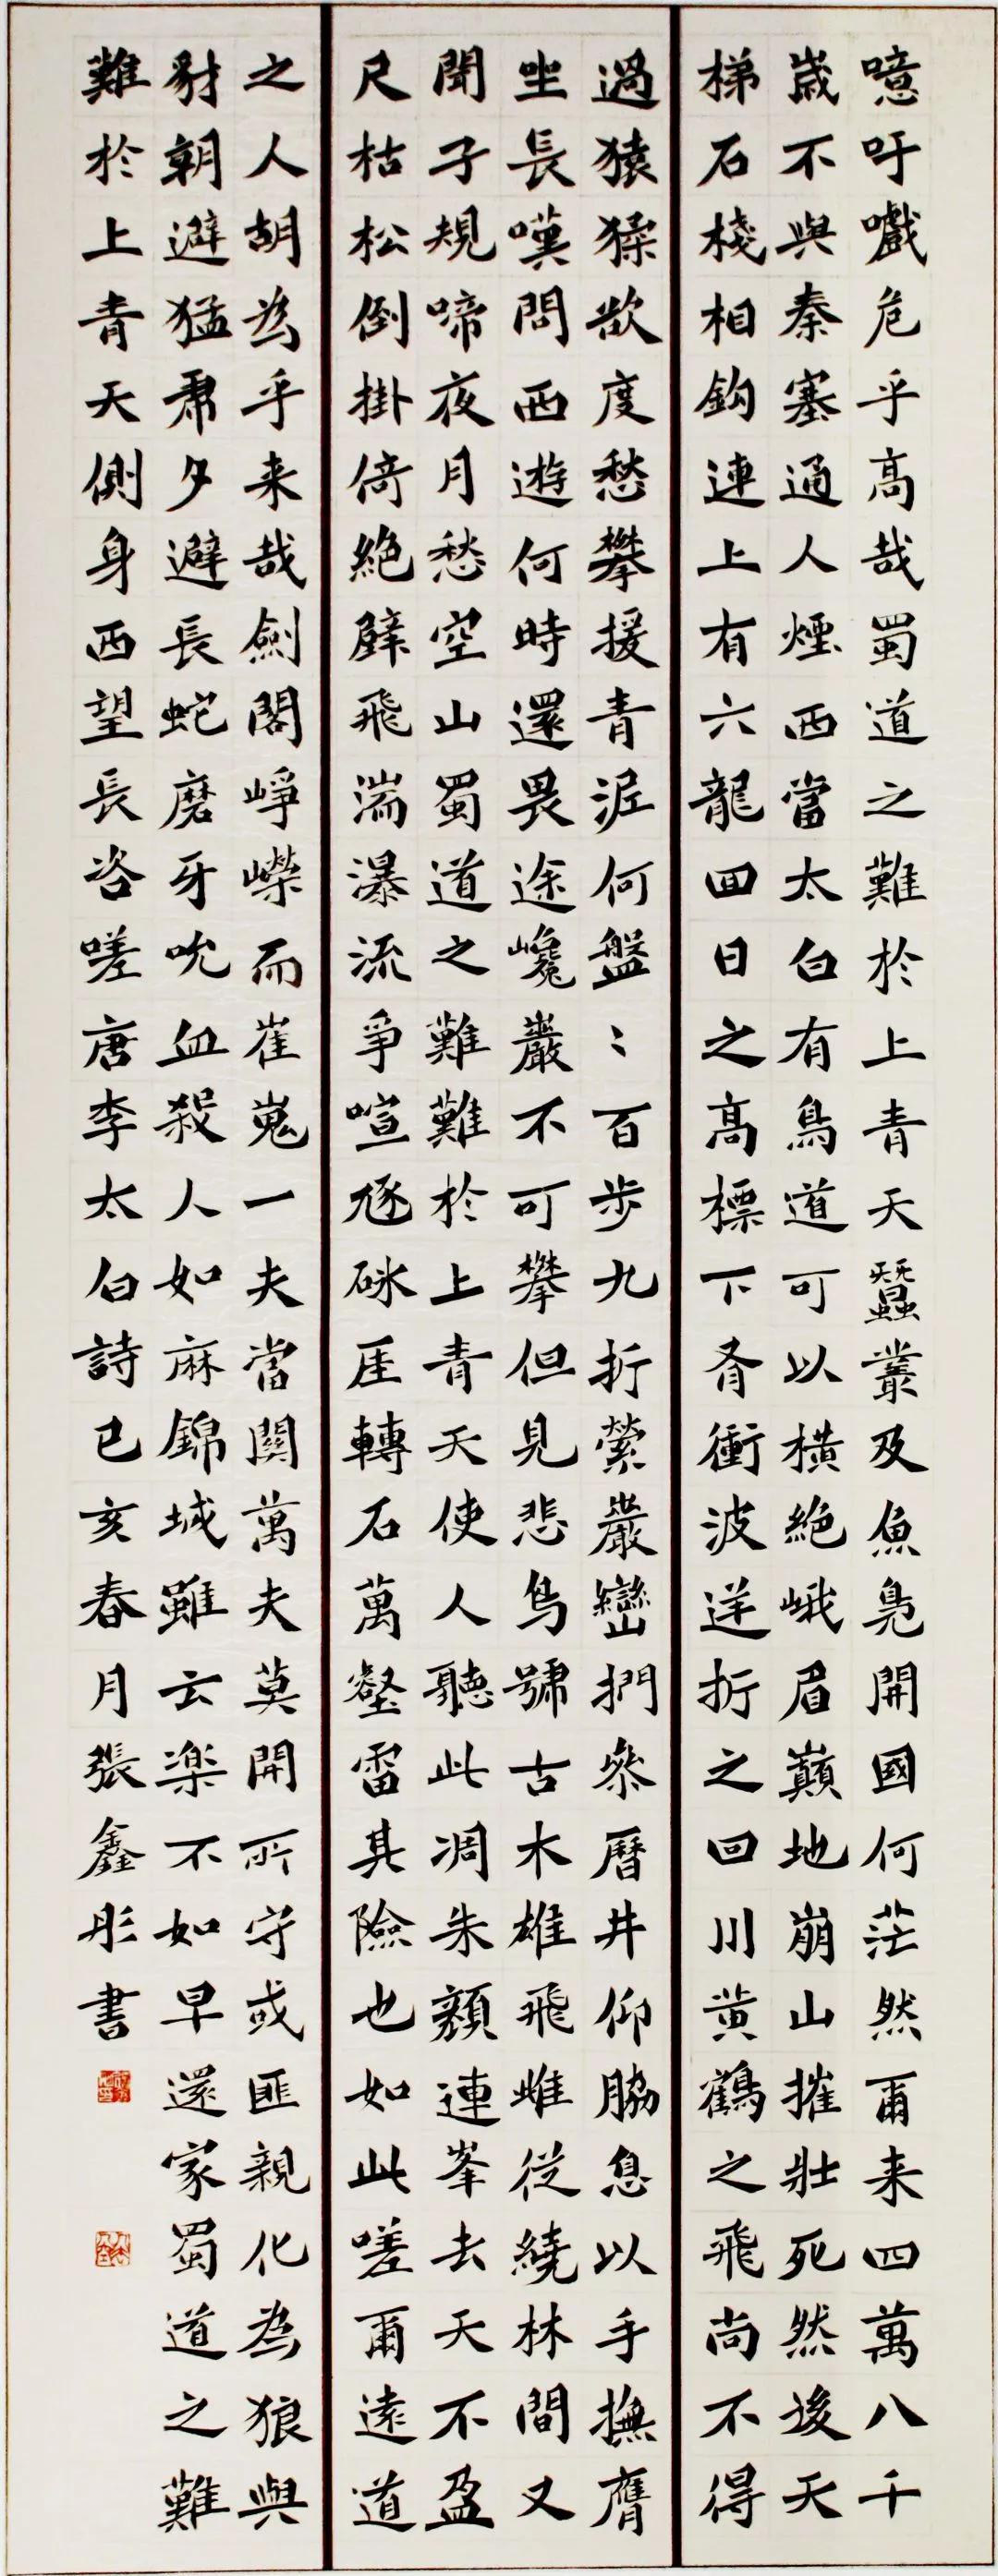 噫吁嚱危乎高哉蜀道之難於上青天蠶叢及魚鳧開國何茫然爾来四萬八千
歲不與秦塞通人煙西當太白有鳥道可以橫絕峨眉巔地崩山摧壯死然後天
梯石棧相鈎連上有六龍回日之高標下有衝波逆折之回川黃鶴之飛尚不得
過猿猱欲度愁攀援青泥何盤〻百步九折縈巖巒捫參曆井仰脇息以手撫膺
坐長嘆問西遊何時還畏途巉巖不可攀但見悲鳥號古木雄飛雌從繞林間又
聞子規啼夜月愁空山蜀道之難難於上青天使人聽此凋朱顏連峯去天不盈
尺枯松倒掛倚絕壁飛湍瀑流爭喧豗砯厓轉石萬壑雷其險也如此嗟爾遠道
之人胡為乎来哉劍閣崢嶸而崔嵬一夫當関萬夫莫開所守或匪親化為狼與
豺朝避猛虎夕避長蛇磨牙吮血殺人如麻錦城雖云楽不如早還家蜀道之難
難於上青天側身西望長咨嗟唐李太白詩已亥春月張鑫彤書